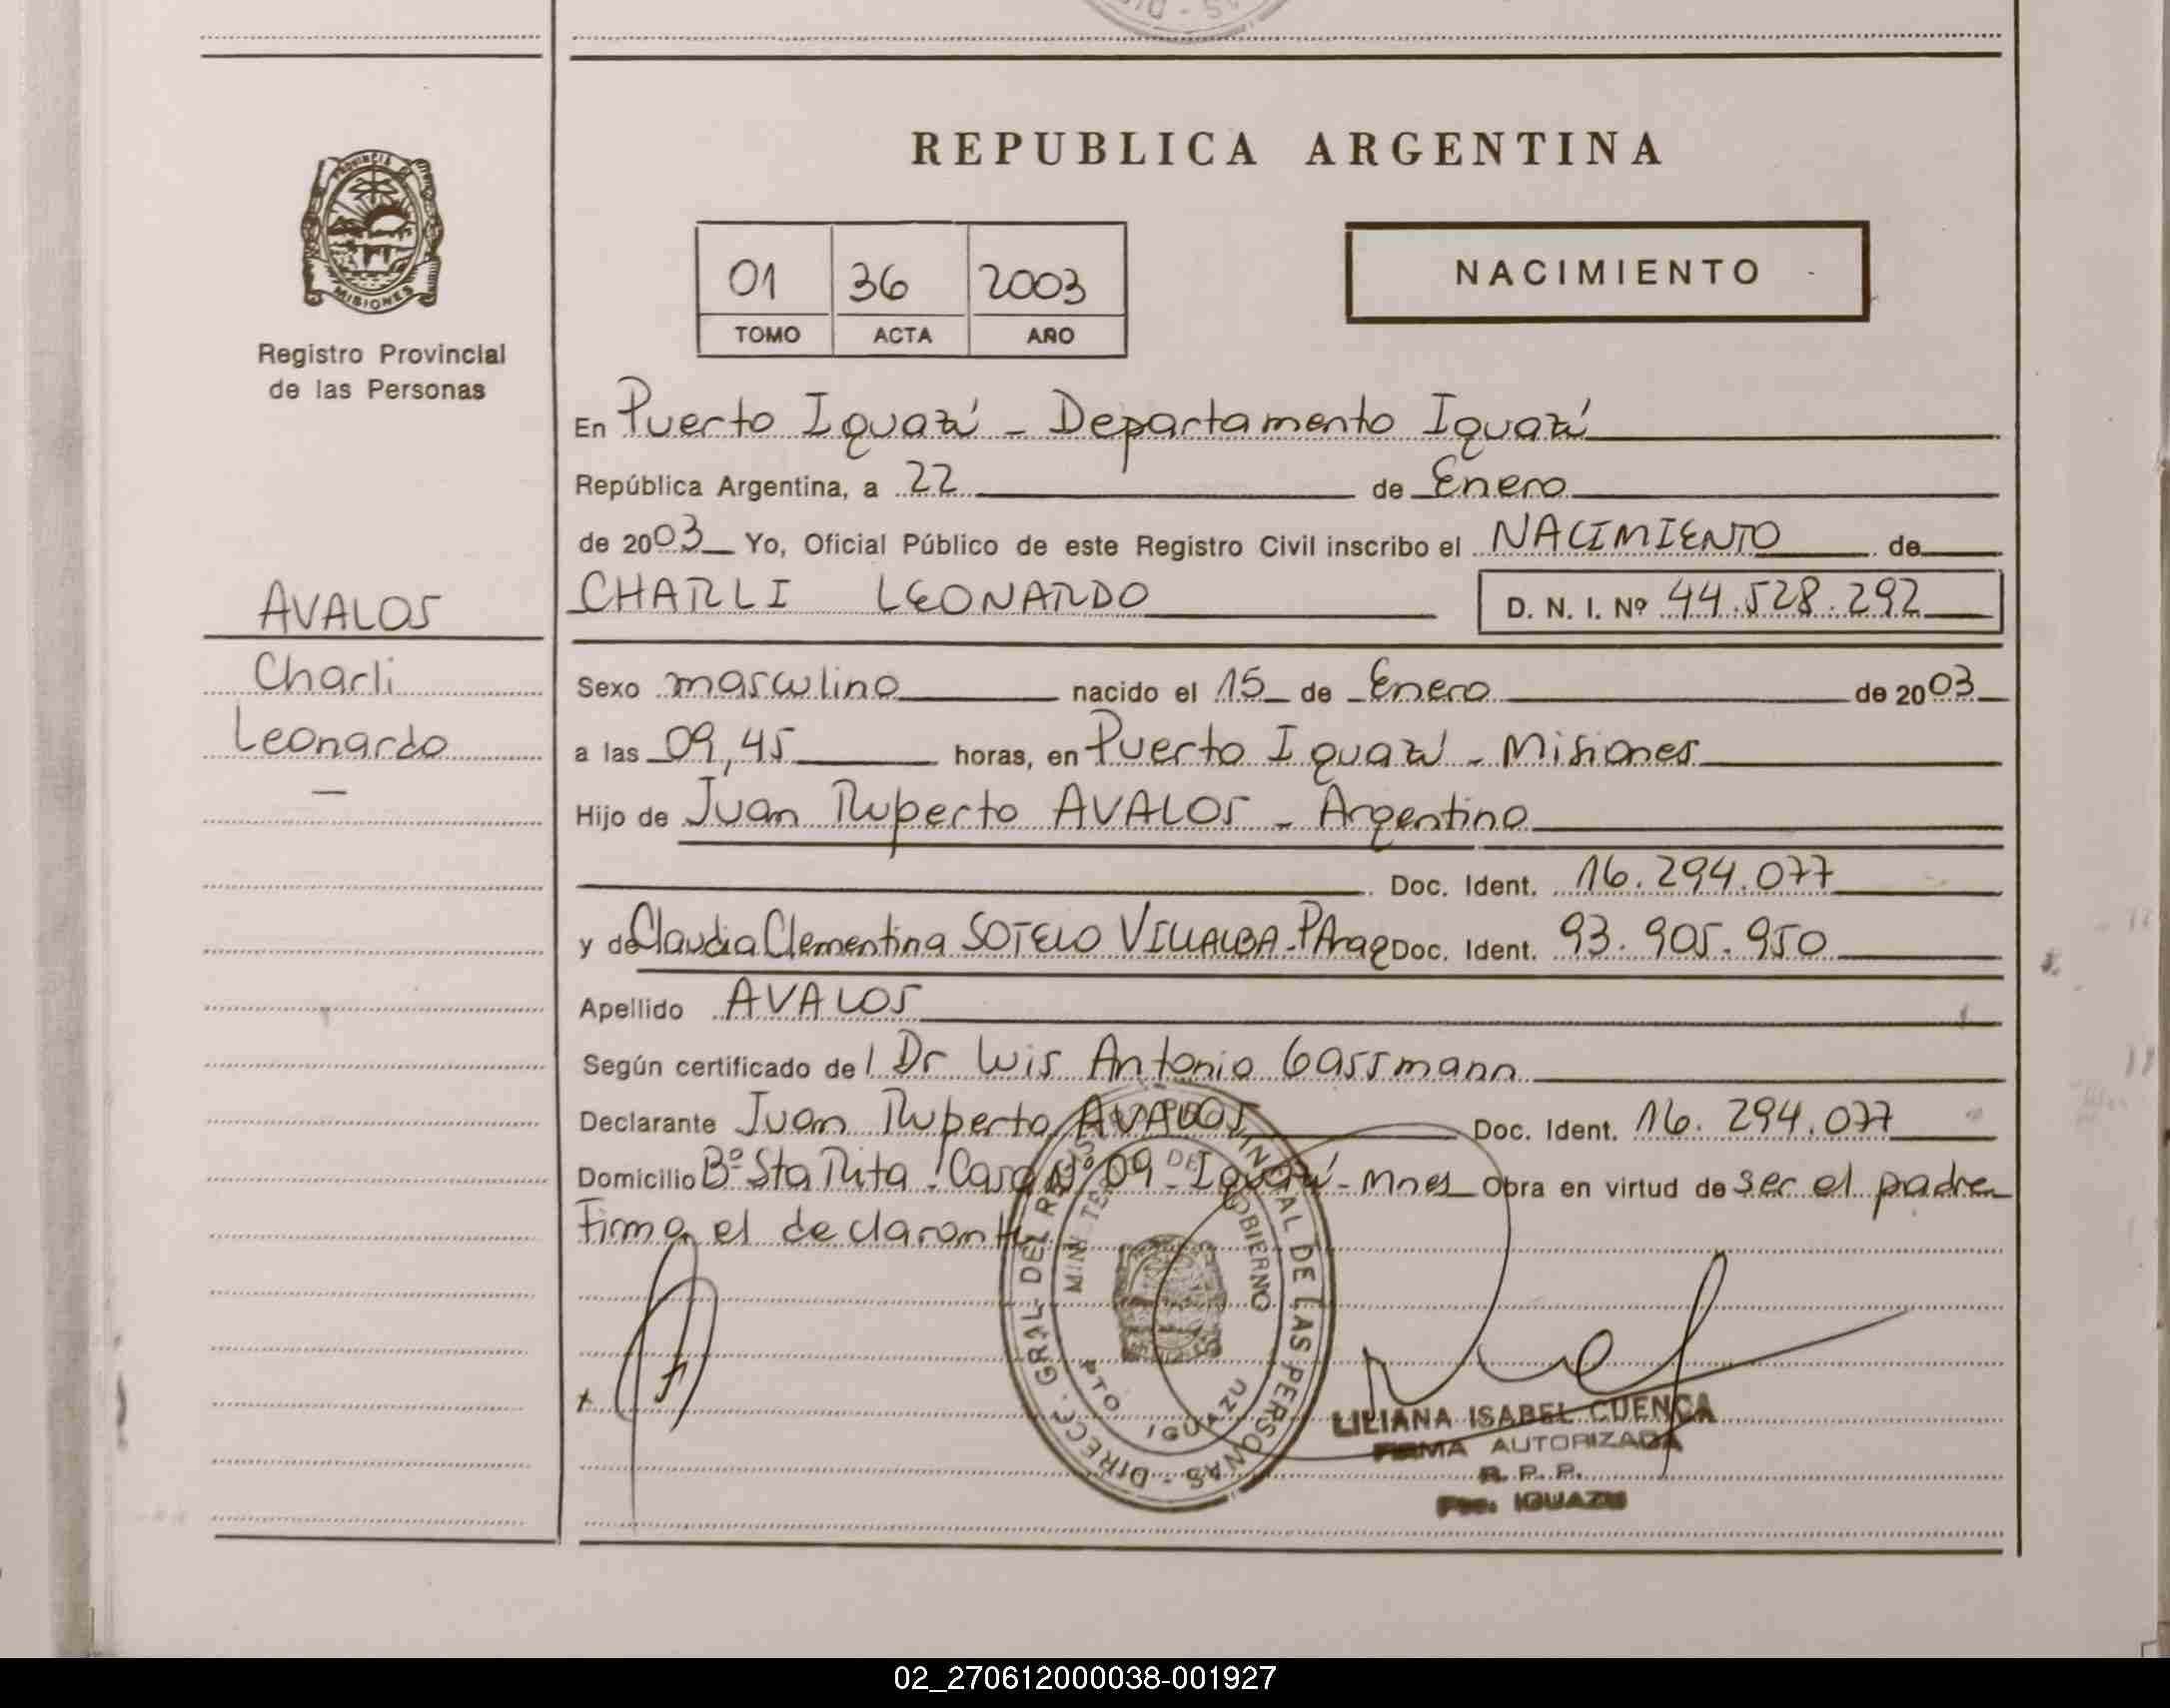 REPUBLICA ARGENTINA
PROVINCIA
MISIONES
Registro Provincial
de las Personas
01 36 2003
TOMO ACTA AÑO
NACIMIENTO
En Puerto Iguazú - Departamento Iguazú
República Argentina, a 22 de Enero
de 2003 Yo, Oficial Público de este Registro Civil inscribo el NACIMIENTO de
AVALOS
CHARLI LEONARDO D. N. I. Nº 44.528.292
Charli
Sexo masculino nacido el 15 de Enero de 2003
Leonardo
a las 09,45 horas, en Puerto Iguazú - Misiones
Hijo de Juan Ruperto AVALOS - Argentino
Doc. Ident. 16.294.077
y de Claudia Clementina SOTELO VILLALBA - PArag Doc. Ident. 93.905.950
Apellido AVALOS
Según certificado del Dr Luis Antonio Gassmann
Declarante Juan Ruperto AVALOS Doc. Ident. 16.294.077
Domicilio Bº Sta Rita - Casa Nº 09 - Iguazú - Mnes Obra en virtud de ser el padre
Firma el declarante
DIRECC. GRAL. DEL REGISTRO PROVINCIAL DE LAS PERSONAS
MINISTERIO DE GOBIERNO
PTO IGUAZU
LILIANA ISABEL CUENCA
FIRMA AUTORIZADA
R. P. P.
Pto. IGUAZU
02_270612000038-001927